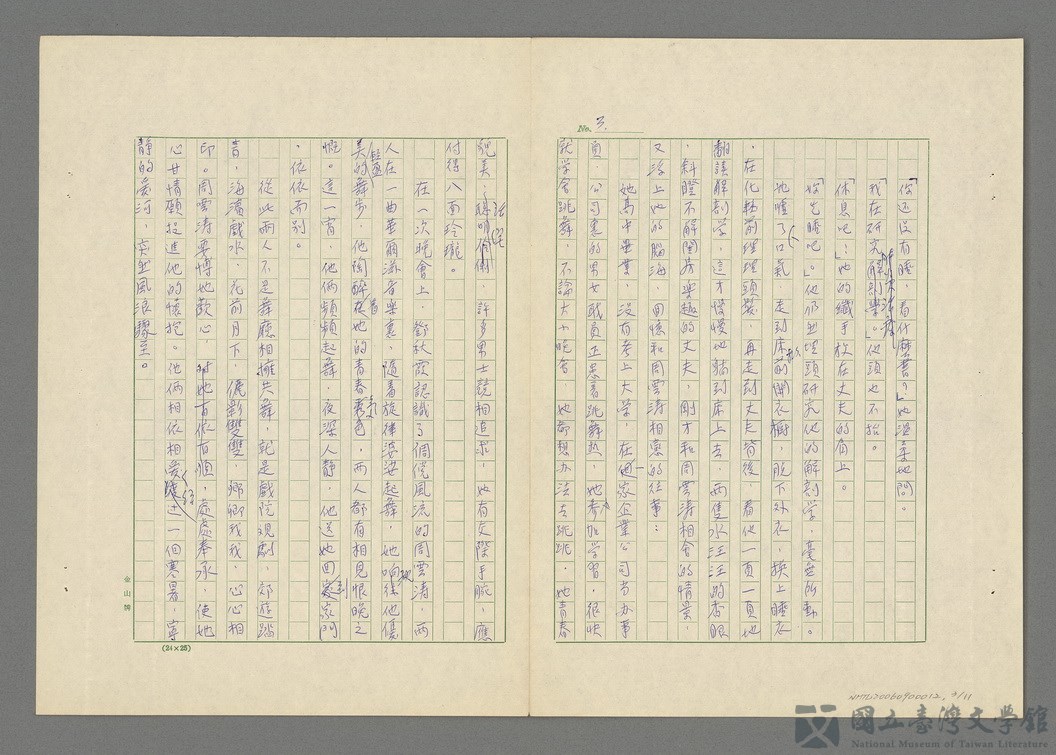 No. 3.
「你還没有睡，看什麼書？」她温柔地問。
「我在研究解剖學。」他頭也不抬。
「休息吧！」她的纖手放在丈夫的肩上。
「妳先睡吧。」他仍然埋頭研究他的解剖学，毫無所動。
她嘘了口氣，走到床前開衣櫥，脱下外衣，換上睡衣
，在化粧前理理頭髮，再走到丈夫背後，看他一頁一頁地
翻讀解剖学，這才慢慢地躺到床上去，兩隻水汪汪的杏眼
，斜瞪不解閨房樂趣的丈夫，剛才和周雲濤相會的情景，
又浮上她的腦海，回憶和周雲濤相戀的往事：
她高中畢業，没有考上大学，在一家企業公司当办事
員，公司裏的男女職員正患着跳舞熱，她参加学習，很快
就学會跳舞，不論大小晚會，她都想办法去跳跳，她青春
貌美，聰明活潑，許多男士競相追求，她有交際手腕，應
付得八面玲瓏。
在一次晚會上，鄧秋霞認識了倜儻風流的周雲濤，兩
人在一曲華爾滋音樂裏，隨着旋律婆娑起舞，她响往他優
美的舞步，他陶醉着她的青春秀色，兩人都有相見恨晚之
慨。這一宵，他倆頻頻起舞，夜深人静，他送她回到家門
，依依而别。
從此兩人不是舞廳相擁共舞，就是戲院观劇，郊遊踏
青，海濱戲水，花前月下，儷影雙雙，卿卿我我，心心相
印。周雲濤要博她歡心，對她百依百順，處處奉承，使她
心甘情願投進他的懷抱。他倆相依相愛經過一個寒暑，寧
静的愛河，突然風浪驟至。
金山牌
(24×25)
NMTL20060900012. 3/11
國立臺灣文學館
National Museum of Taiwan Literature